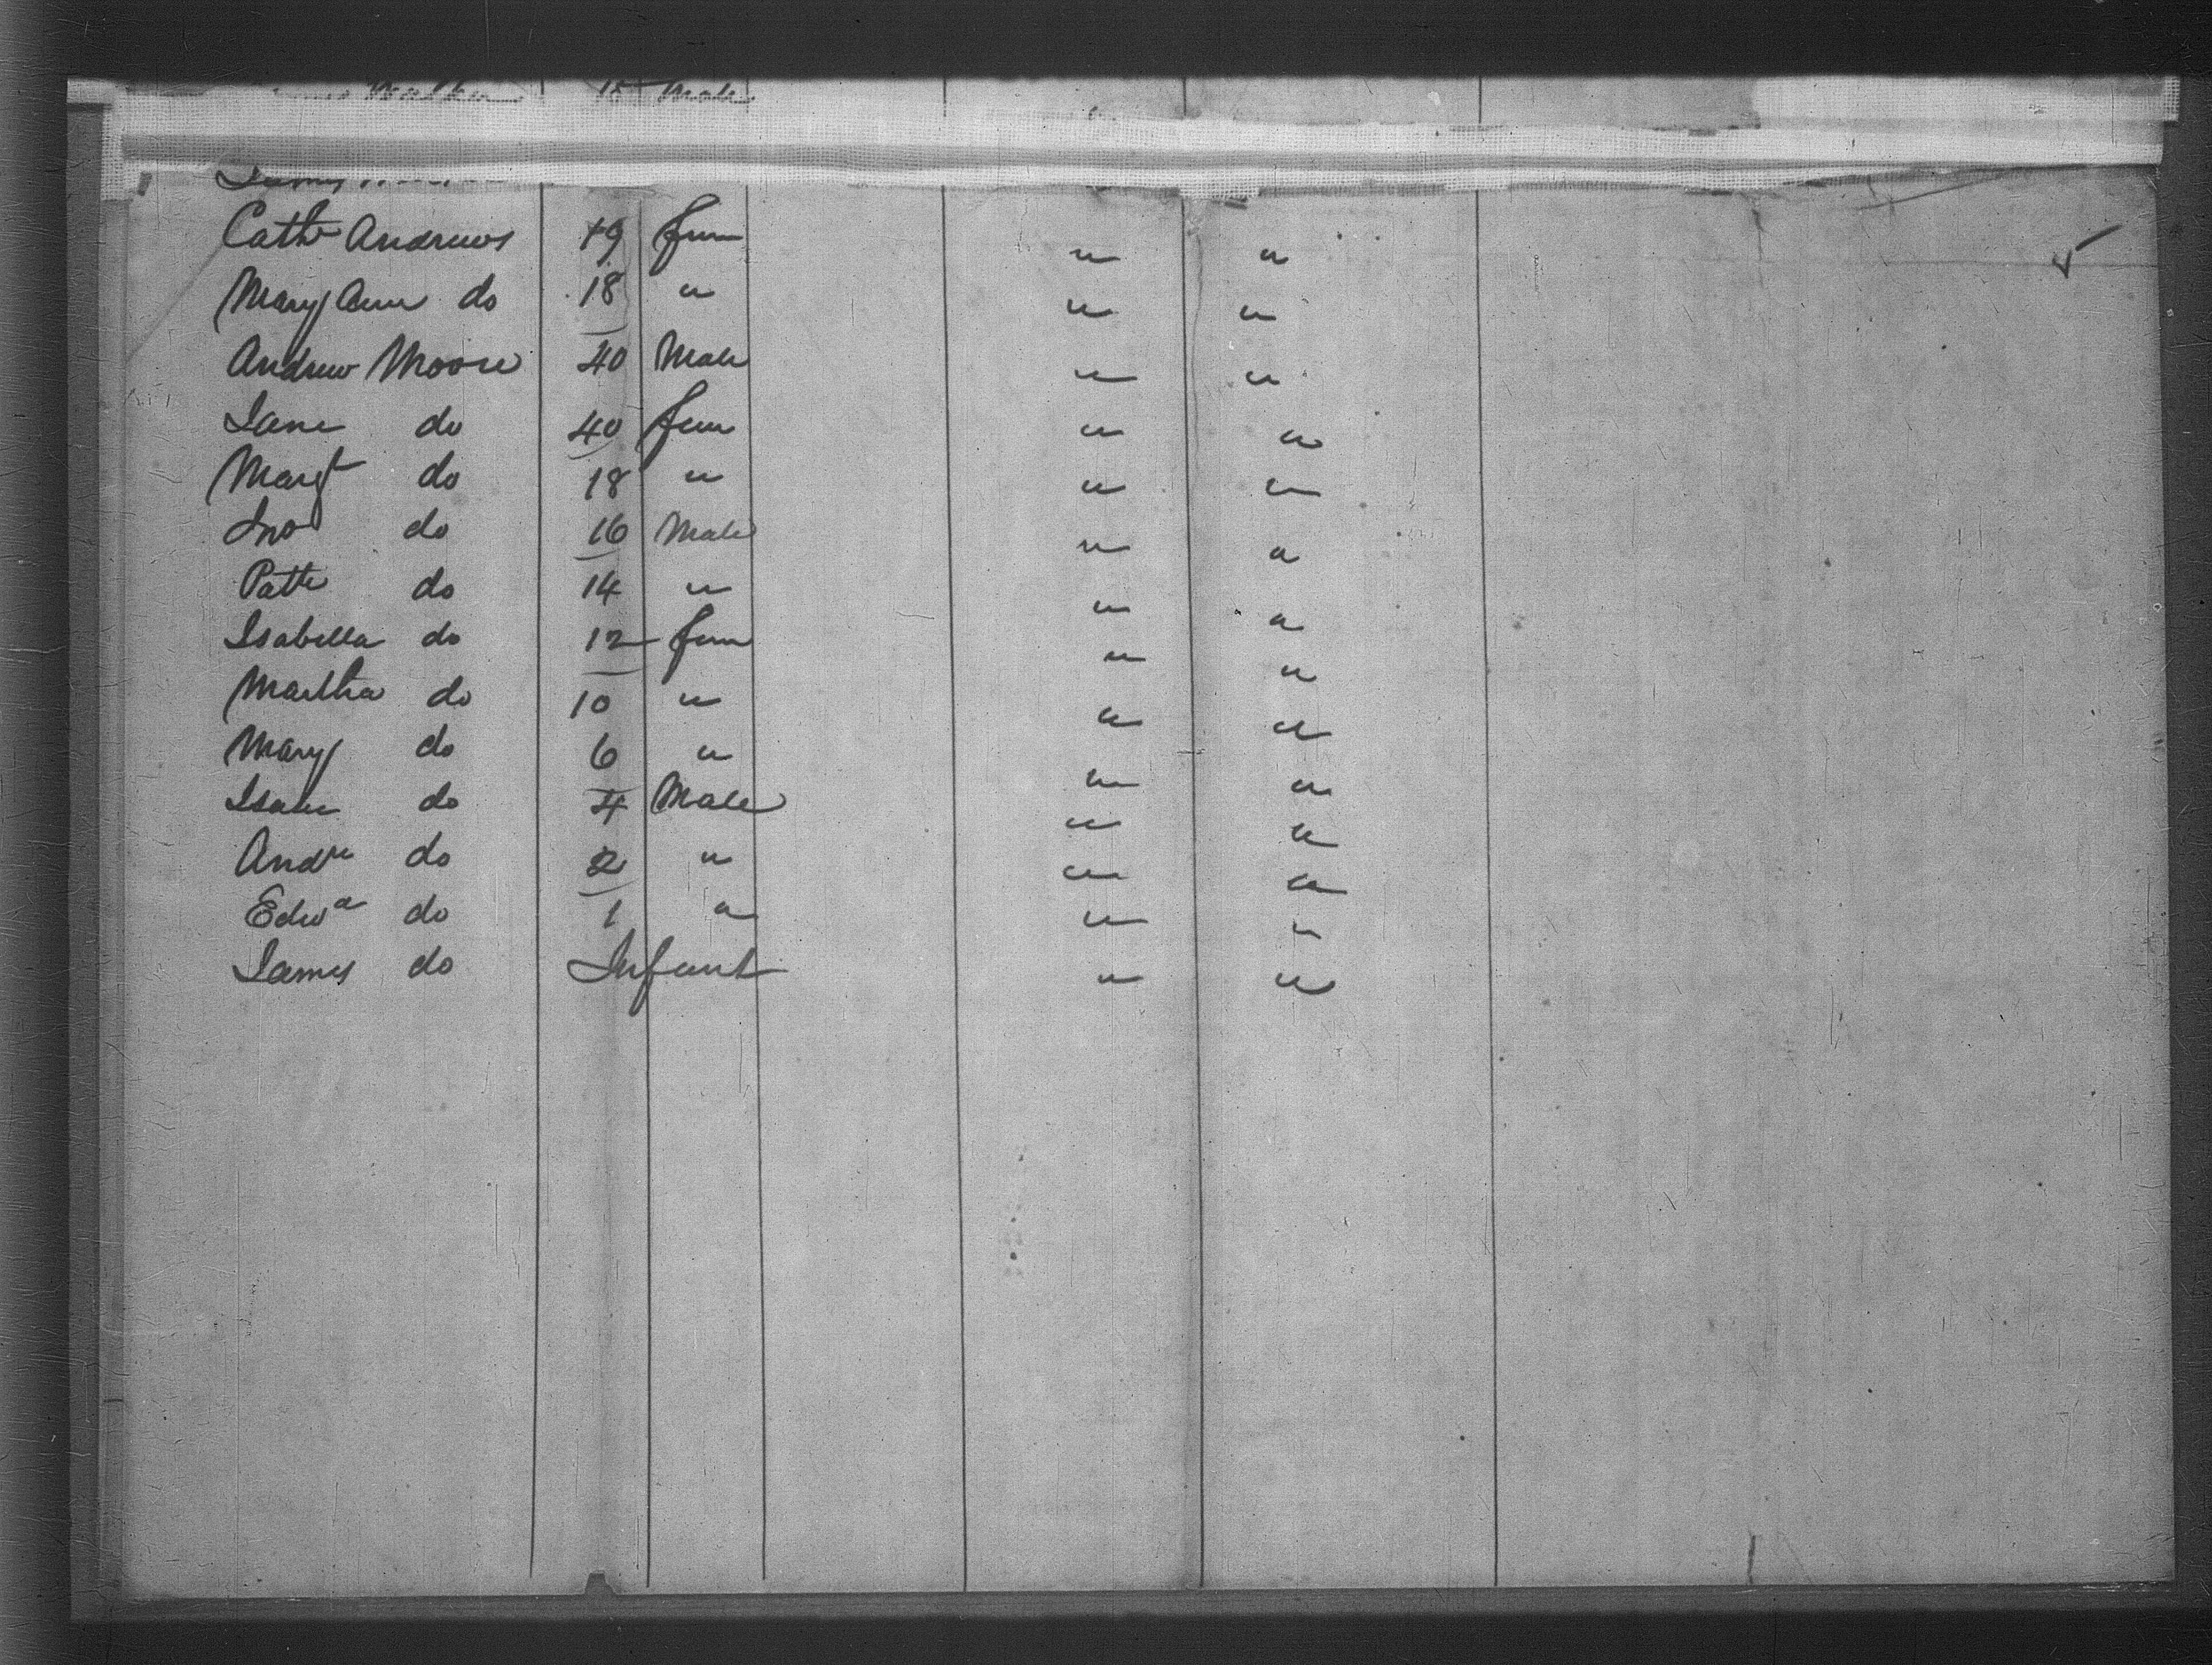 Walker 15 Male
James
Cathe Andrews 19 fem " "
Mary Ann do 18 " " "
Andrew Moore 40 Male " "
Jane do 40 fem " "
Margt do 18 " " "
Jno do 16 Male " "
Patk do 14 " " "
Isabella do 12 fem " "
Martha do 10 " " "
Mary do 6 " " "
Isaac do 4 Male " "
Andw do 2 " " "
Edwd do 1 " " "
James do Infant " "